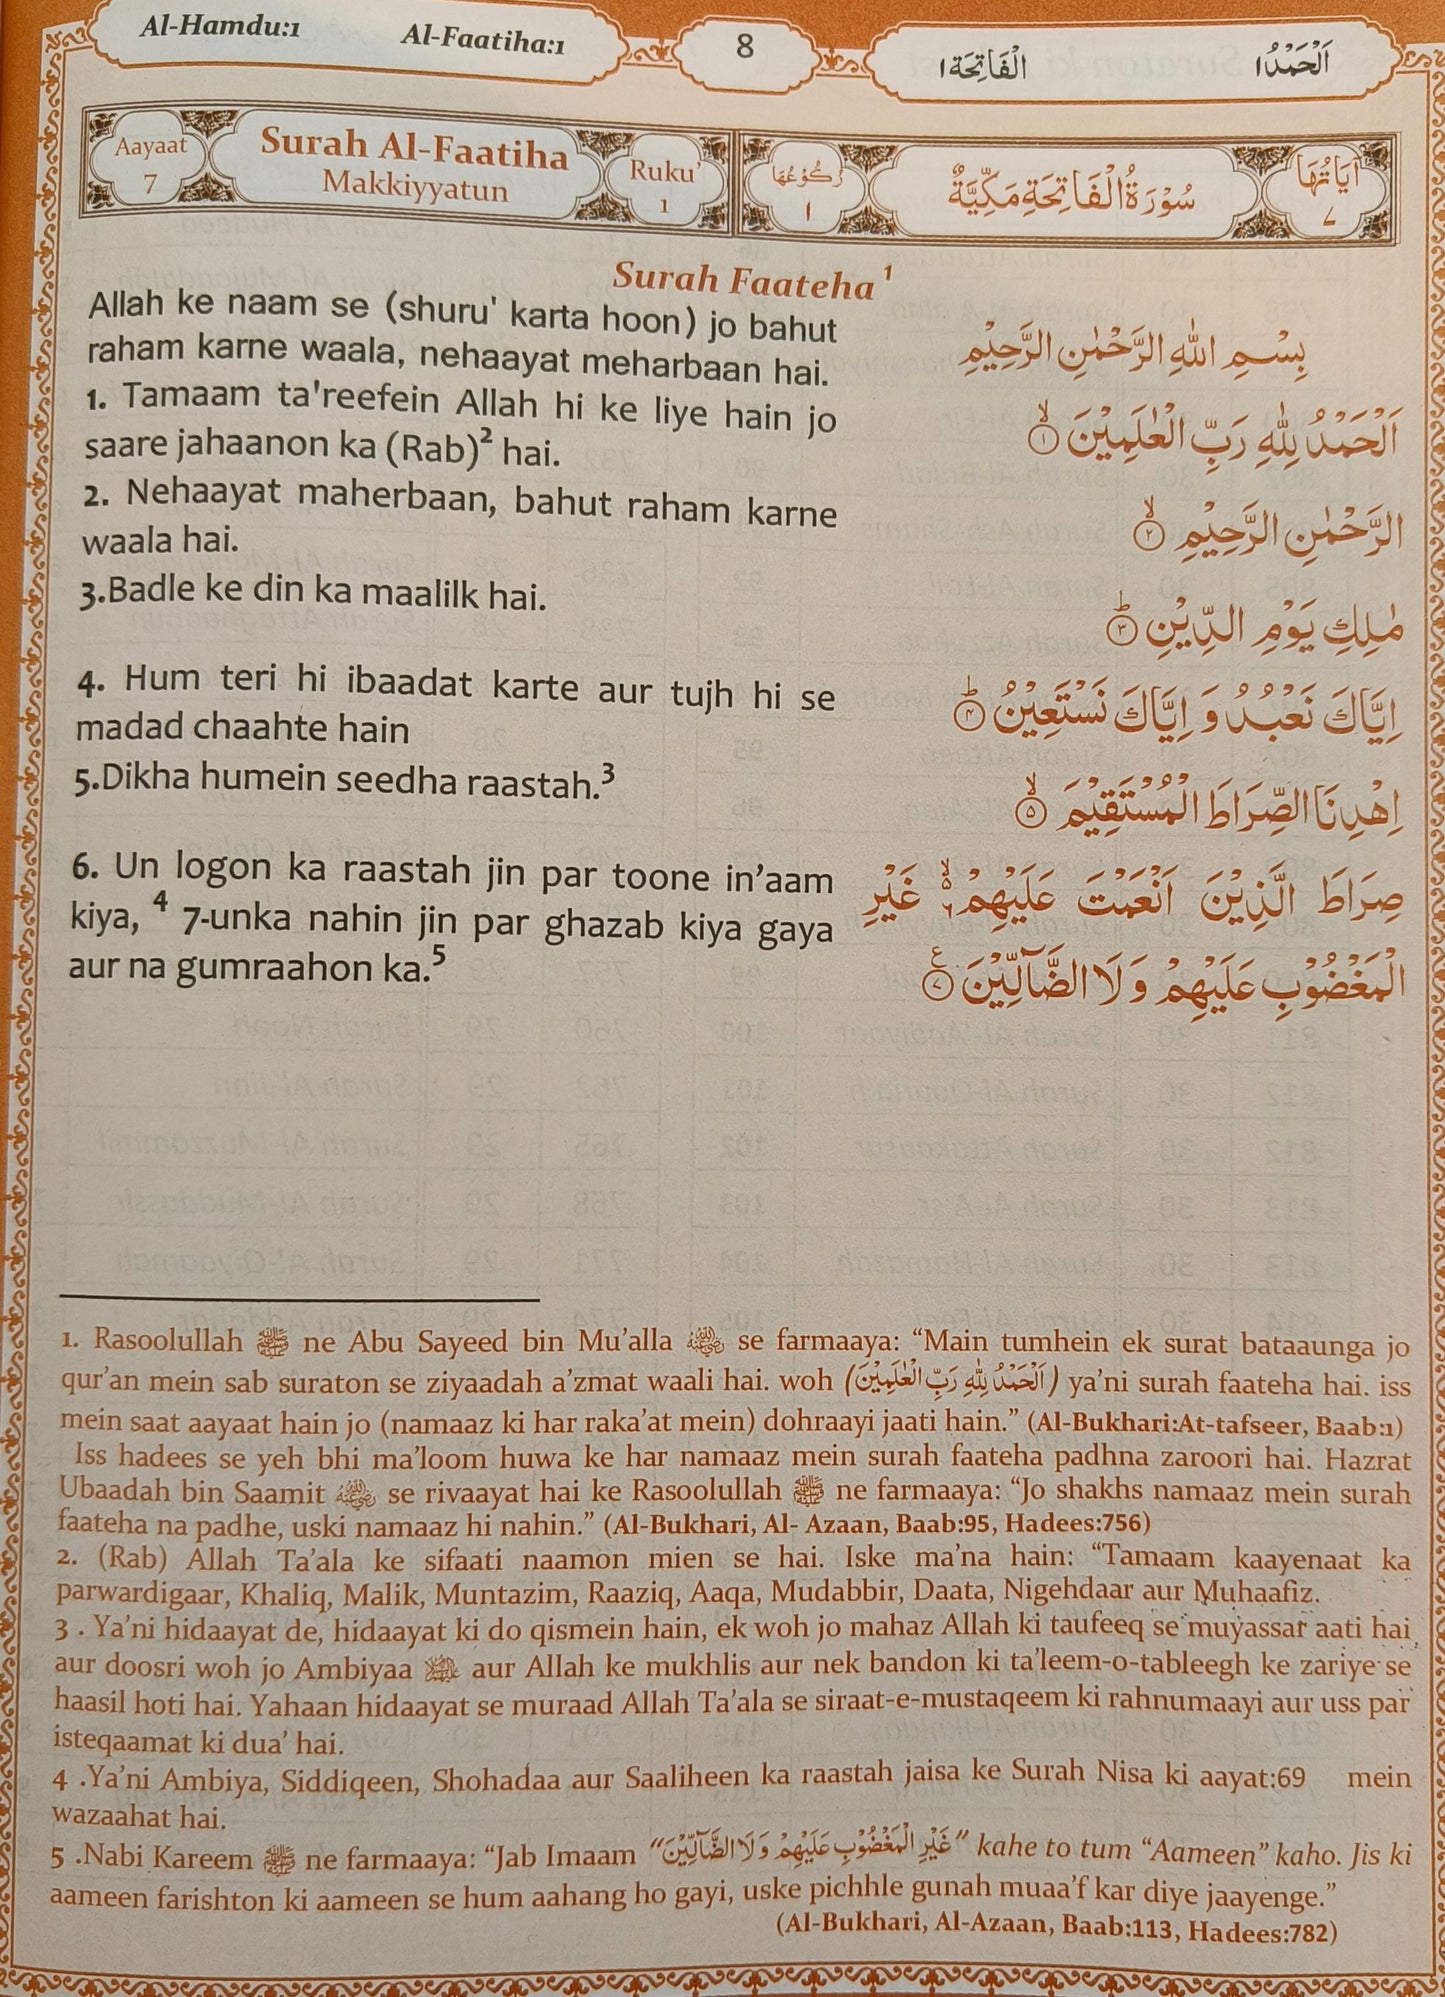 Al-Hamdu:1 Al-Faatiha:1 8 اَلْفَاتِحَة١ اَلْحَمْدُ١
Aayaat 7 Surah Al-Faatiha Makkiyyatun Ruku' 1 رُكُوْعُهَا ١ سُوْرَةُ الْفَاتِحَةِ مَكِّيَّةٌ اٰيَاتُهَا ٧
Surah Faateha ¹
Allah ke naam se (shuru' karta hoon) jo bahut
raham karne waala, nehaayat meharbaan hai.
1. Tamaam ta'reefein Allah hi ke liye hain jo
saare jahaanon ka (Rab)² hai.
2. Nehaayat maherbaan, bahut raham karne
waala hai.
3.Badle ke din ka maalilk hai.
4. Hum teri hi ibaadat karte aur tujh hi se
madad chaahte hain
5.Dikha humein seedha raastah.³
6. Un logon ka raastah jin par toone in’aam
kiya, ⁴ 7-unka nahin jin par ghazab kiya gaya
aur na gumraahon ka.⁵
بِسْمِ اللّٰهِ الرَّحْمٰنِ الرَّحِيْمِ
اَلْحَمْدُ لِلّٰهِ رَبِّ الْعٰلَمِيْنَ ۙ﴿١﴾
الرَّحْمٰنِ الرَّحِيْمِ ۙ﴿٢﴾
مٰلِكِ يَوْمِ الدِّيْنِ ؕ﴿٣﴾
اِيَّاكَ نَعْبُدُ وَ اِيَّاكَ نَسْتَعِيْنُ ؕ﴿٤﴾
اِهْدِنَا الصِّرَاطَ الْمُسْتَقِيْمَ ۙ﴿٥﴾
صِرَاطَ الَّذِيْنَ اَنْعَمْتَ عَلَيْهِمْ ۙ٦ غَيْرِ
الْمَغْضُوْبِ عَلَيْهِمْ وَ لَا الضَّآلِّيْنَ ﴿٧﴾ ع
1. Rasoolullah ﷺ ne Abu Sayeed bin Mu’alla رضي الله عنه se farmaaya: “Main tumhein ek surat bataaunga jo
qur’an mein sab suraton se ziyaadah a’zmat waali hai. woh (اَلْحَمْدُ لِلّٰهِ رَبِّ الْعٰلَمِيْنَ) ya’ni surah faateha hai. iss
mein saat aayaat hain jo (namaaz ki har raka’at mein) dohraayi jaati hain.” (Al-Bukhari:At-tafseer, Baab:1)
Iss hadees se yeh bhi ma’loom huwa ke har namaaz mein surah faateha padhna zaroori hai. Hazrat
Ubaadah bin Saamit رضي الله عنه se rivaayat hai ke Rasoolullah ﷺ ne farmaaya: “Jo shakhs namaaz mein surah
faateha na padhe, uski namaaz hi nahin.” (Al-Bukhari, Al- Azaan, Baab:95, Hadees:756)
2. (Rab) Allah Ta’ala ke sifaati naamon mien se hai. Iske ma’na hain: “Tamaam kaayenaat ka
parwardigaar, Khaliq, Malik, Muntazim, Raaziq, Aaqa, Mudabbir, Daata, Nigehdaar aur Muhaafiz.
3 . Ya’ni hidaayat de, hidaayat ki do qismein hain, ek woh jo mahaz Allah ki taufeeq se muyassar aati hai
aur doosri woh jo Ambiyaa aur Allah ke mukhlis aur nek bandon ki ta’leem-o-tableegh ke zariye se
haasil hoti hai. Yahaan hidaayat se muraad Allah Ta’ala se siraat-e-mustaqeem ki rahnumaayi aur uss par
isteqaamat ki dua’ hai.
4 .Ya’ni Ambiya, Siddiqeen, Shohadaa aur Saaliheen ka raastah jaisa ke Surah Nisa ki aayat:69 mein
wazaahat hai.
5 .Nabi Kareem ﷺ ne farmaaya: “Jab Imaam “غَيْرِ الْمَغْضُوْبِ عَلَيْهِمْ وَ لَا الضَّآلِّيْنَ” kahe to tum “Aameen” kaho. Jis ki
aameen farishton ki aameen se hum aahang ho gayi, uske pichhle gunah muaa’f kar diye jaayenge.”
(Al-Bukhari, Al-Azaan, Baab:113, Hadees:782)